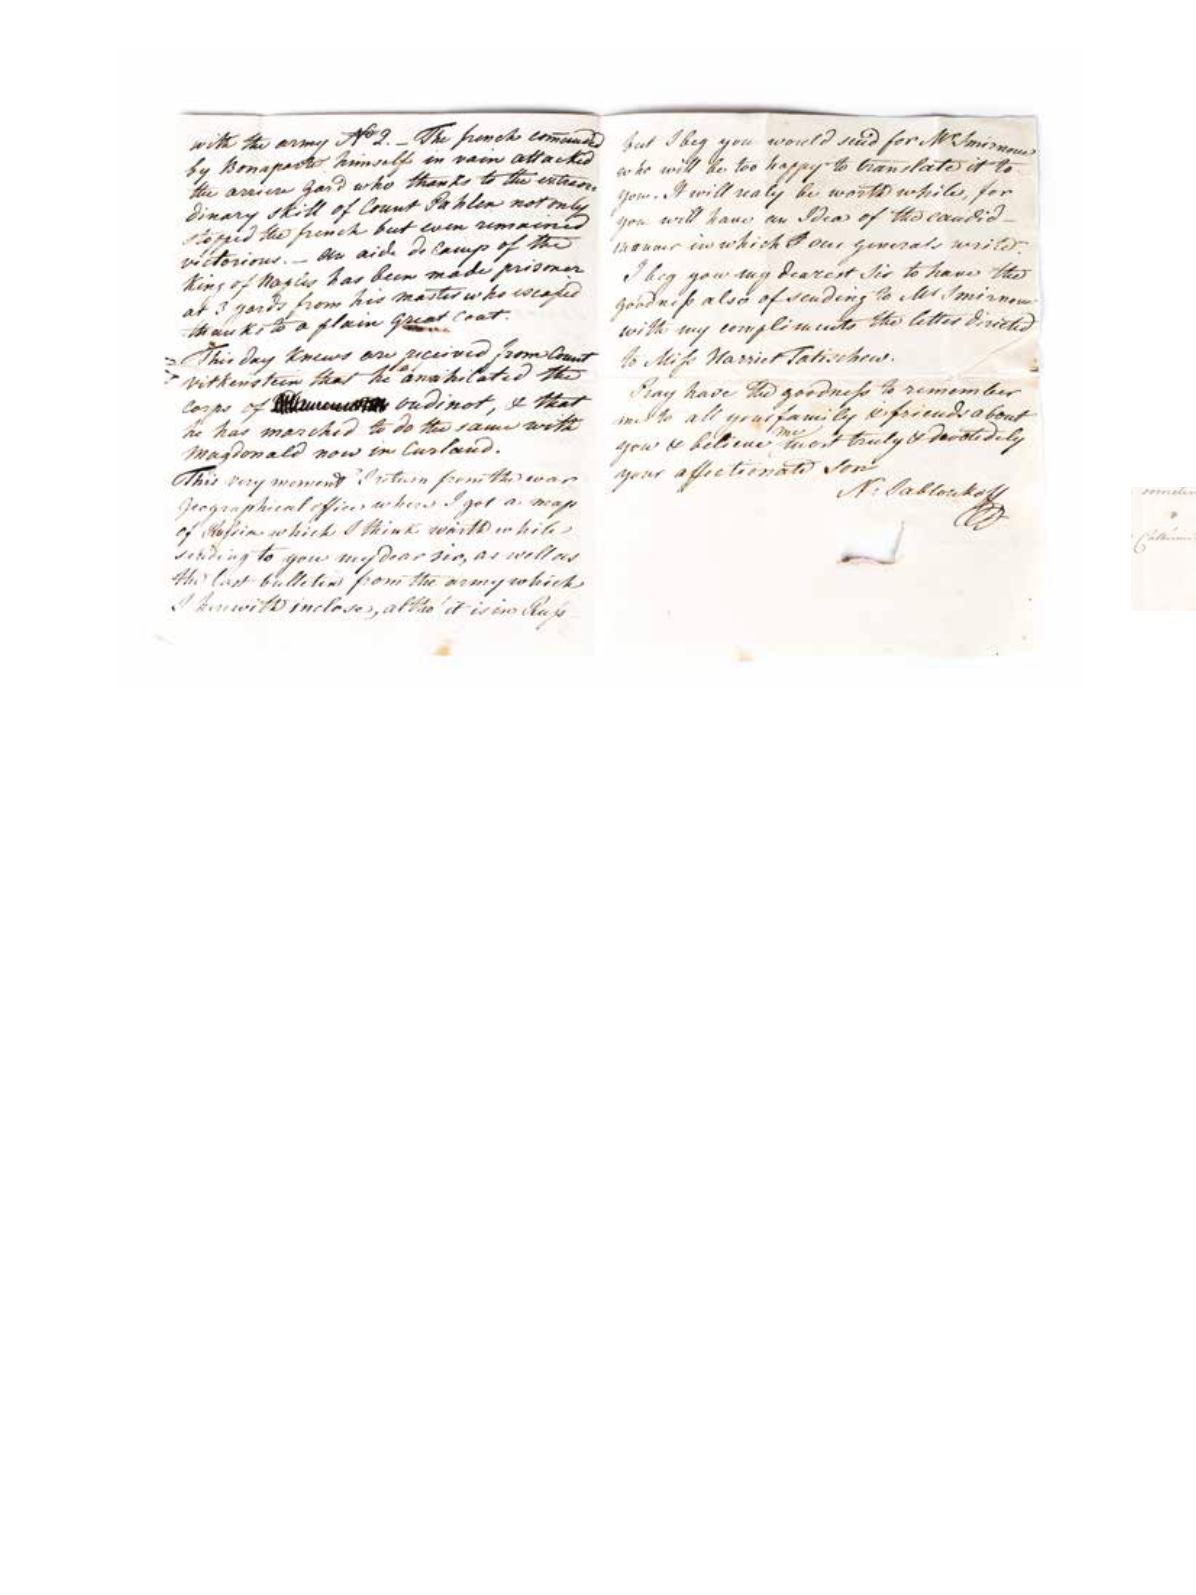 with the army No 2. – The french comanded
by Bonaparte himself in vain attacked
the arriere gard who thanks to the extraor
dinary skill of Count Pahlen not only
stopped the french but even remained
victorious. – an aide de Camp of the
King of Naples has been made prisoner
at 3 yards from his master who escaped
thanks to a plain Great Coat.
This day knews are received from Count
vitkenstein that he anihilated the
corps of oudinot, & that
he has marched to do the same with
Magdonald now in Curland.
This very moment I return from the war
Geographical office where I got a map
of Russia which I think worth while
sending to you my dear sir, as well as
the last bulletin from the army which
I herewith inclose, altho' it is in Russ
but I beg you would send for Mr Smirnove
who will be too happy to translate it to
you. It will realy be worth while, for
you will have an Idea of the candid
manner in which our generals write.
I beg you my dearest Sir to have the
goodness also of sending to Mr Smirnove
with my compliments the letter directed
to Miss Harriet Tatischew.
Pray have the goodness to remember
me to all your family & friends about
you & believe me most truly & devotedely
your affectionate Son
N. Jablonskoff